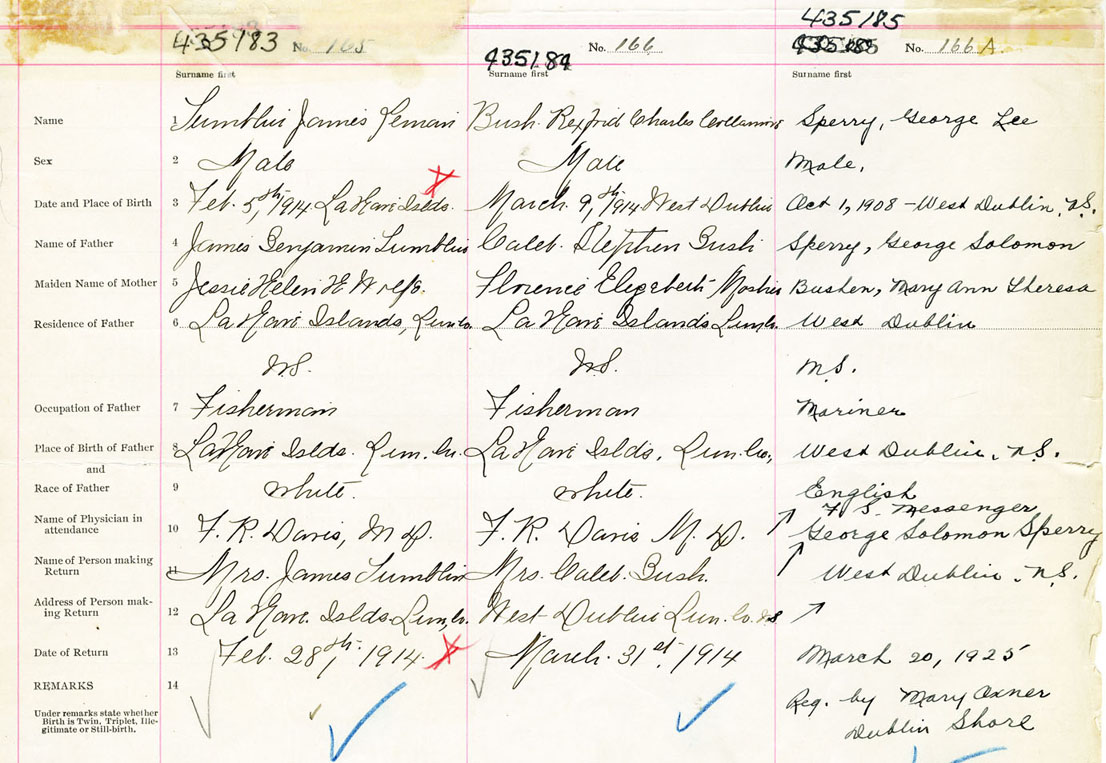 435183 No. 165
435184 No. 166
435185
435185 No. 166 A.
Surname first Surname first Surname first
Name 1 Sumblin James Leman Bush. Rexford Charles Sperry, George Lee
Sex 2 Male Male Male.
Date and Place of Birth 3 Feb. 5th, 1914 LaHave Islds. March. 9th, 1914 West Dublin Oct 1, 1908 - West Dublin, N.S.
Name of Father 4 James Benjamin Sumblin Caleb. Stephen Bush Sperry, George Solomon
Maiden Name of Mother 5 Jessie Helen H Wolfe. Florence Elizebeth Mosher Bushen, Mary Ann Theresa
Residence of Father 6 LaHave Islands, Lun.Co. LaHave Islands Lun.Co. West Dublin
N.S. N.S. N.S.
Occupation of Father 7 Fisherman Fisherman Mariner
Place of Birth of Father 8 LaHave Islds. Lun. Co. LaHave Islds. Lun. Co., West Dublin, N.S.
and
Race of Father 9 White. White. English
F. S. Messenger
Name of Physician in attendance 10 F. R. Davis, M D. F. R. Davis M. D. George Solomon Sperry
Name of Person making Return 11 Mrs. James Sumblin Mrs. Caleb. Bush. West Dublin, N.S.
Address of Person mak-
ing Return 12 La Have. Islds. Lun.Co. West Dublin Lun. Co. NS
Date of Return 13 Feb. 28th, 1914. March. 31st, 1914 March 20, 1925
REMARKS 14
Reg. by Mary Oxner
Dublin Shore
Under remarks state whether
Birth is Twin, Triplet, Ille-
gitimate or Still-birth.